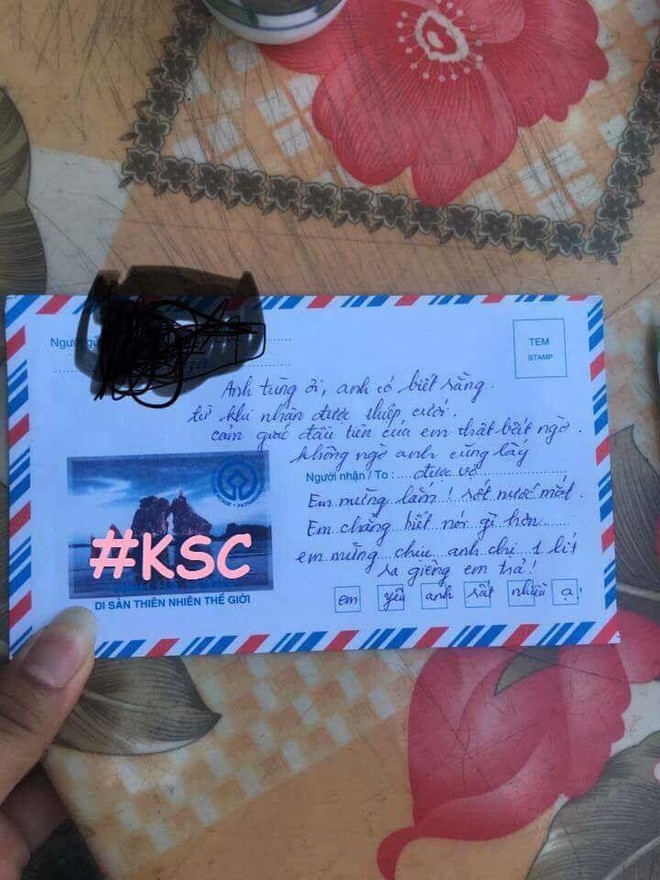 Người gửi
TEM
STAMP
Anh tùng ơi, anh có biết rằng.
từ khi nhận được thiệp cưới.
cảm giác đầu tiên của em thật bất ngờ.
không ngờ anh cũng lấy
Người nhận / To : được vợ
Em mừng lắm! rớt nước mắt.
Em chẳng biết nói gì hơn
em mừng chúc anh chị 1 lít
ra giêng em trả!
em yêu anh rất nhiều ạ!
#KSC
DI SẢN THIÊN NHIÊN THẾ GIỚI